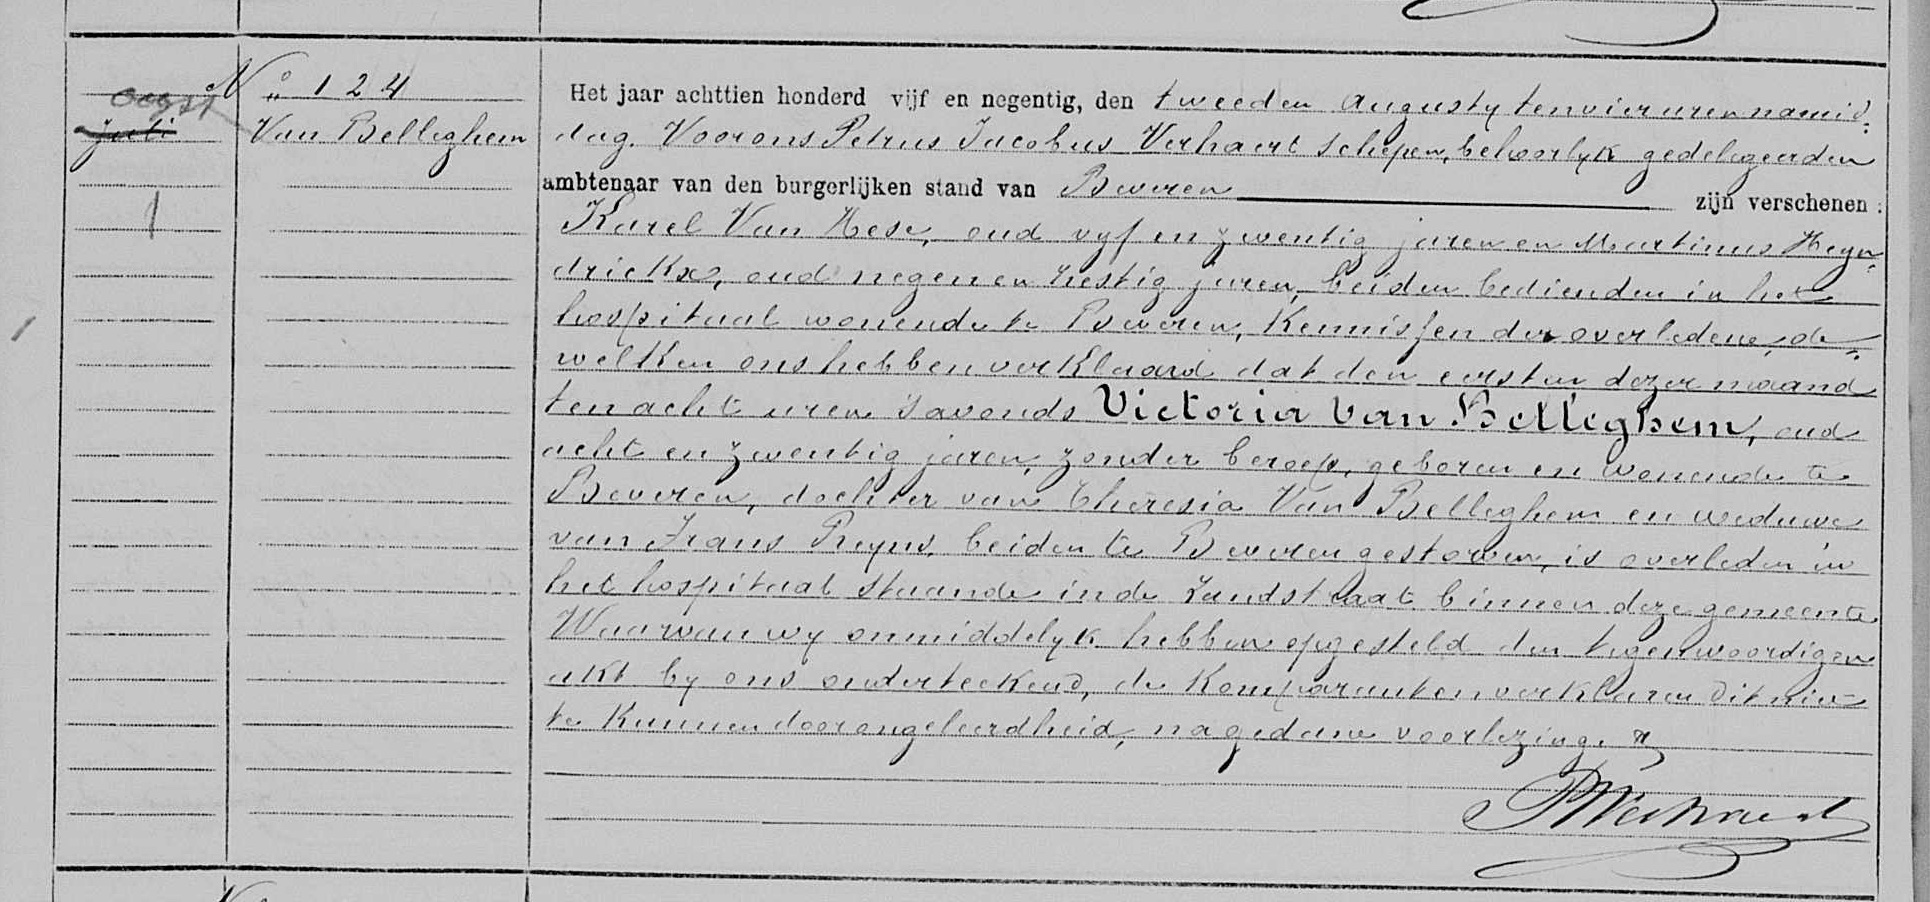 N° 124
Oogst
Juli
Van Belleghem
1
Het jaar achttien honderd vijf en negentig, den tweeden Augusty ten vier uren namid-
dag. Voor ons Petrus Jacobus Verhaert Schepen, behoorlyk gedelegeerden
ambtenaar van den burgerlijken stand van Beveren zijn verschenen :
Karel Van Hese, oud vyf en zwentig jaren en Martinus Heyn-
drickx, oud negen en sestig jaren, beiden bedienden in het
hospitaal wonende te Beveren, Kennissen der overledene, de-
welken ons hebben verklaard dat den eersten dezer maand
ten acht uren 's avonds Victoria Van Belleghem, oud
acht en zwentig jaren, zonder beroep, geboren en wonende te
Beveren, dochter van Theresia Van Belleghem en weduwe
van Frans Preyns, beiden te Beveren gestorven, is overleden in
het hospitaal staande in de Zandstraat binnen deze gemeente.
Waarvan wy onmiddelyk hebben opgesteld den tegenwoordigen
akt by ons onderteekend, de Komparanten verklaren dit niet
te kunnen door ongeleerdheid, na gedane voorlezing.
PJVerhaert